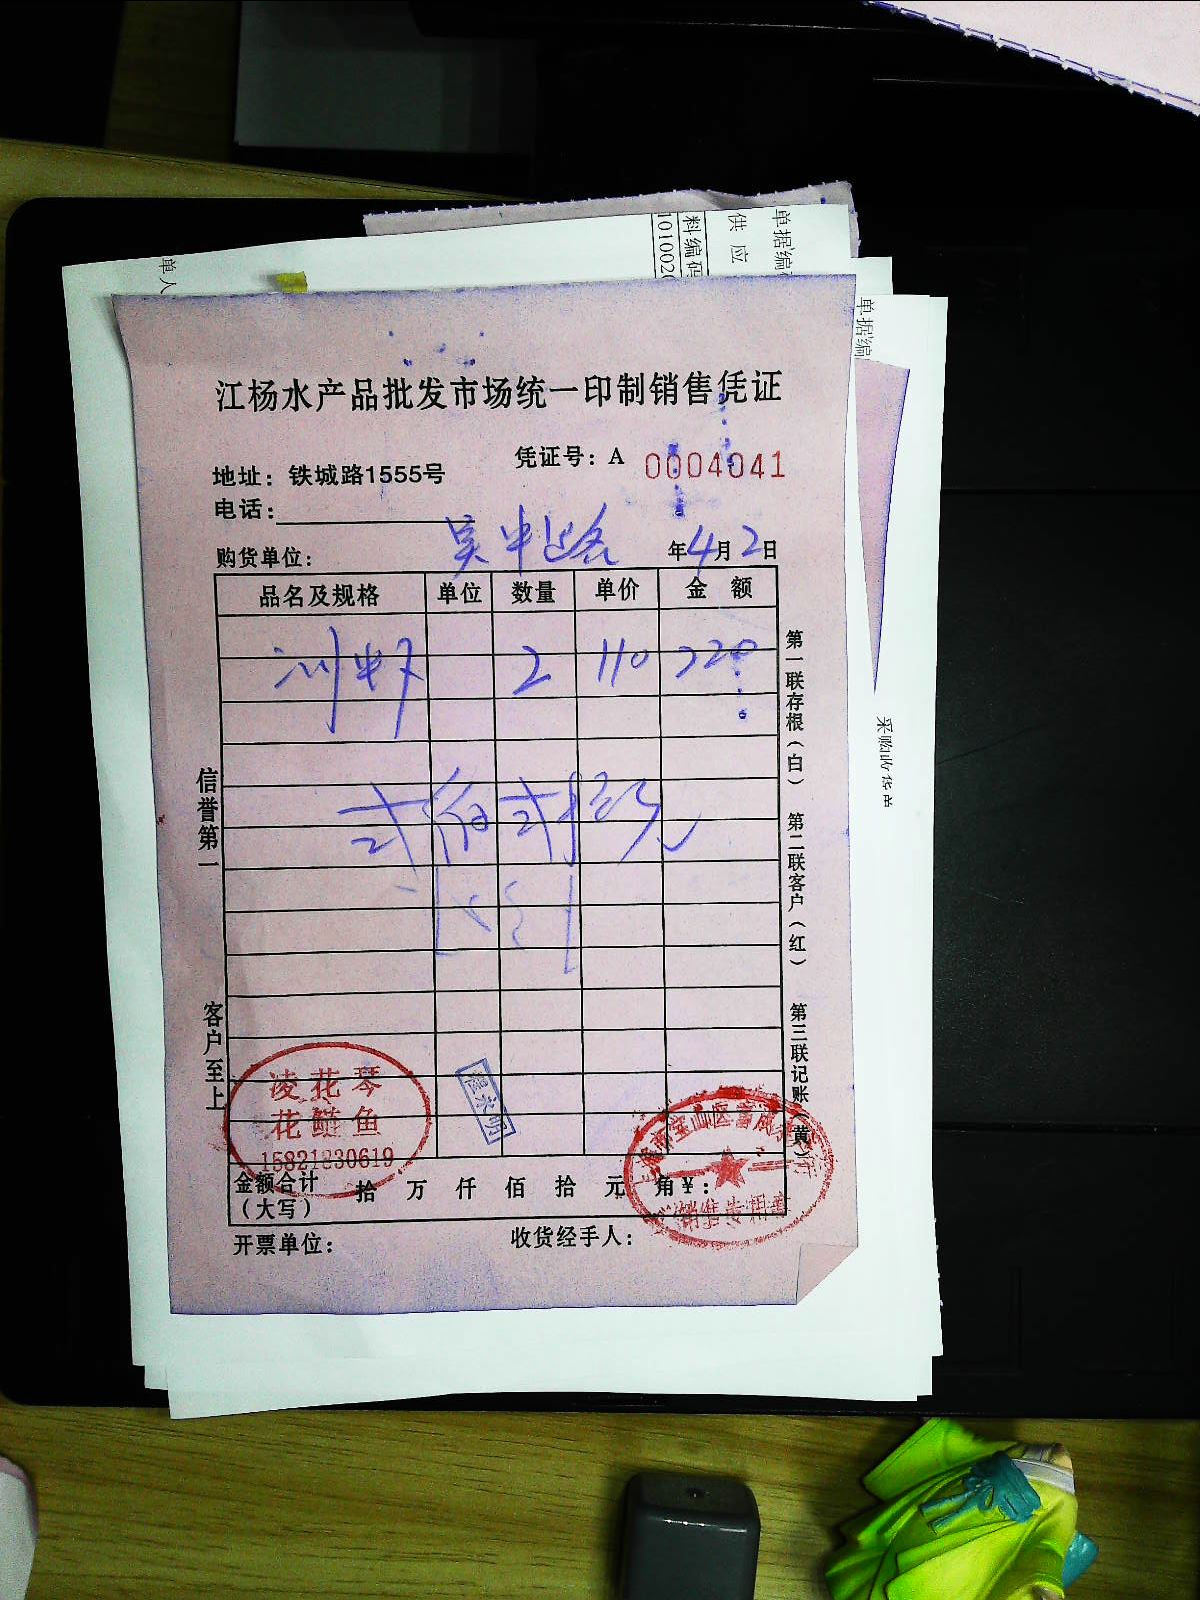 单据编
供 应
料编码
单人
单据编
江杨水产品批发市场统一印制销售凭证
凭证号：A 0004041
地址：铁城路1555号
电话：
购货单位： 吴中路 年4月2日
品名及规格 单位 数量 单价 金 额
2 110 220
弍佰弍拾元
信誉第一
客户至上
第一联存根（白） 第二联客户（红） 第三联记账（黄）
采购收货单
凌花琴
花鲢鱼
15821830619
销售专用章
金额合计（大写） 拾 万 仟 佰 拾 元 角 ¥：
开票单位： 收货经手人：